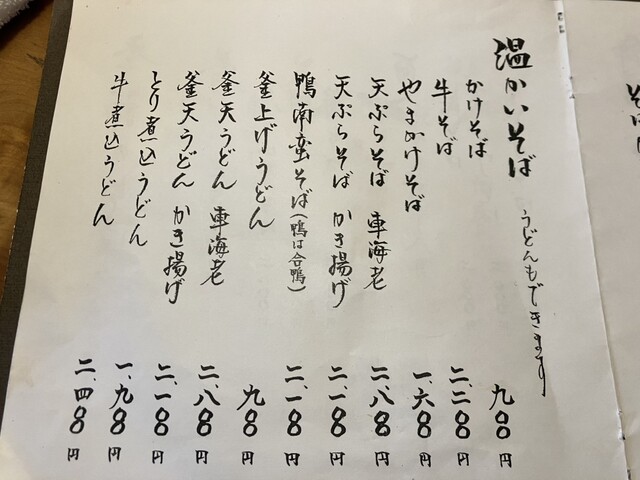 温かいそば うどんもできます
かけそば 九〇〇円
牛そば 二、二〇〇円
やまかけそば 一、六〇〇円
天ぷらそば 車海老 二、八〇〇円
天ぷらそば かき揚げ 二、一〇〇円
鴨南蛮そば(鴨は合鴨) 二、一〇〇円
釜上げうどん 九〇〇円
釜天うどん 車海老 二、八〇〇円
釜天うどん かき揚げ 二、一〇〇円
とり煮込うどん 一、九〇〇円
牛煮込うどん 二、四〇〇円